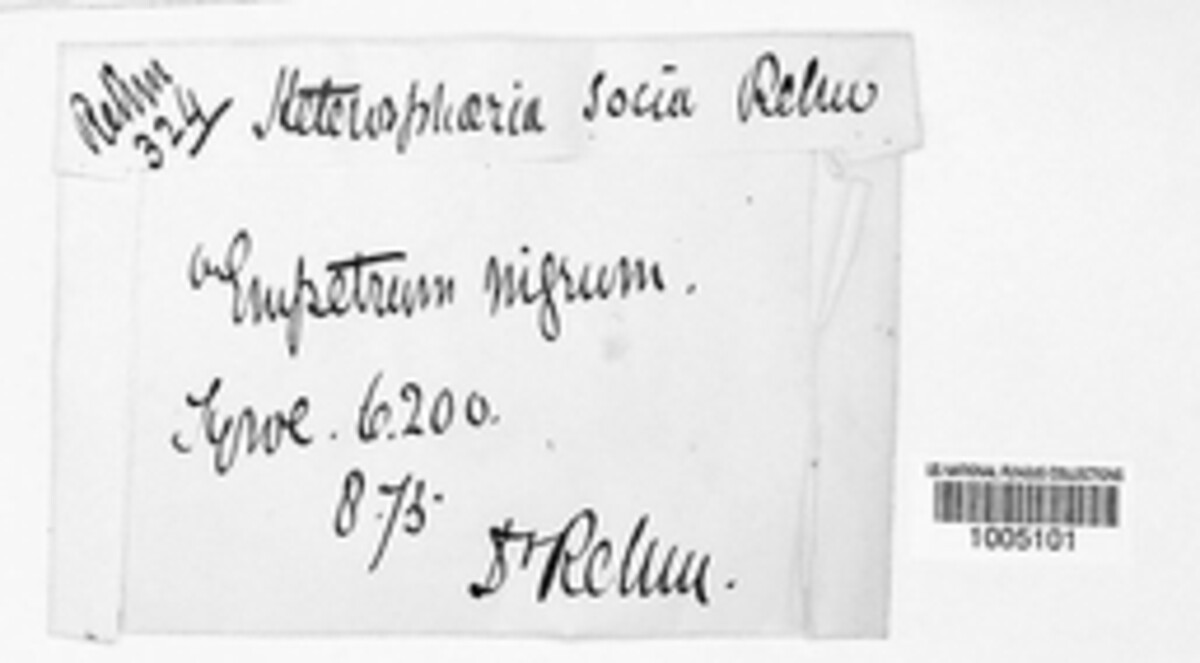 Rehm
324
Heterosphæria socia Rehm
Empetrum nigrum.
6.200.
8/75
Dr Rehm.
US NATIONAL FUNGUS COLLECTIONS
1005101